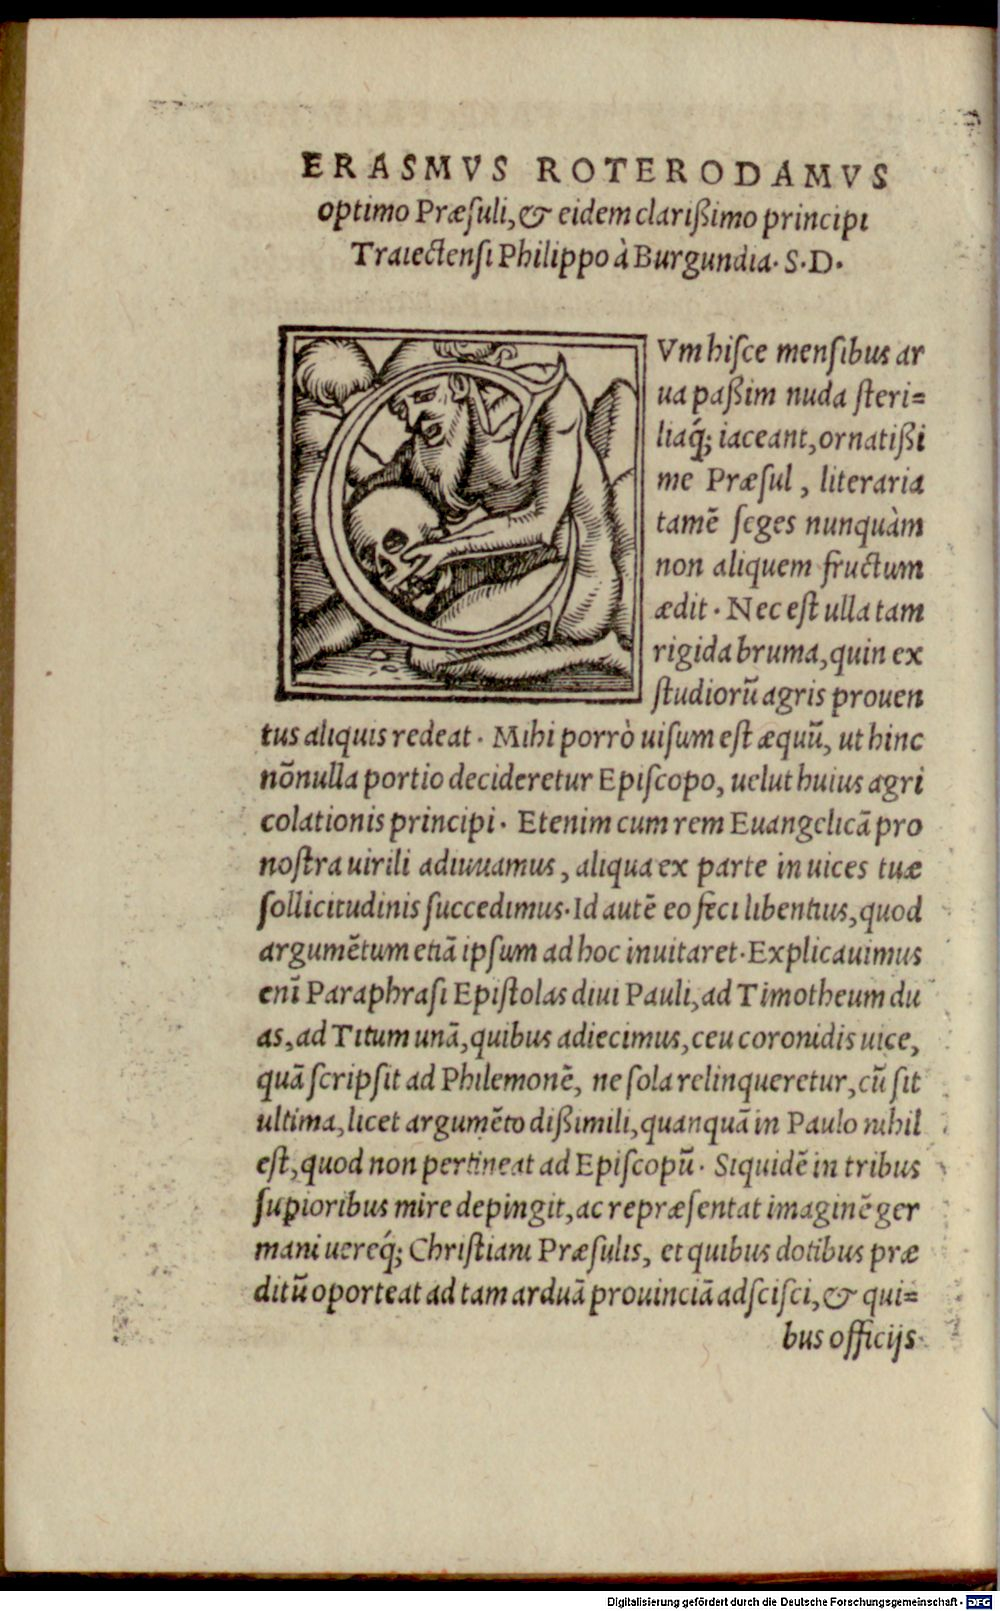 ERASMVS ROTERODAMVS
optimo Præsuli, & eidem clarißimo principi
Traiectensi Philippo à Burgundia. S.D.
CVm hisce mensibus ar
ua paßim nuda steri=
liaq́; iaceant, ornatißi
me Præsul, literaria
tamē seges nunquàm
non aliquem fructum
ædit. Nec est ulla tam
rigida bruma, quin ex
studiorū agris prouen
tus aliquis redeat. Mihi porrò uisum est æquū, ut hinc
nōnulla portio decideretur Episcopo, uelut huius agri
colationis principi. Etenim cum rem Euangelicā pro
nostra uirili adiuuamus, aliqua ex parte in uices tuæ
sollicitudinis succedimus. Id autē eo feci libentius, quod
argumētum etiā ipsum ad hoc inuitaret. Explicauimus
enī Paraphrasi Epistolas diui Pauli, ad Timotheum du
as, ad Titum unā, quibus adiecimus, ceu coronidis uice,
quā scripsit ad Philemonē, ne sola relinqueretur, cū sit
ultima, licet argumēto dißimili, quanquā in Paulo nihil
est, quod non pertineat ad Episcopū. Siquidē in tribus
supioribus mire depingit, ac repræsentat imaginē ger
mani uereq́; Christiani Præsulis, et quibus dotibus præ
ditū oporteat ad tam arduā prouinciā adscisci, & qui=
bus officijs
Digitalisierung gefördert durch die Deutsche Forschungsgemeinschaft - DFG